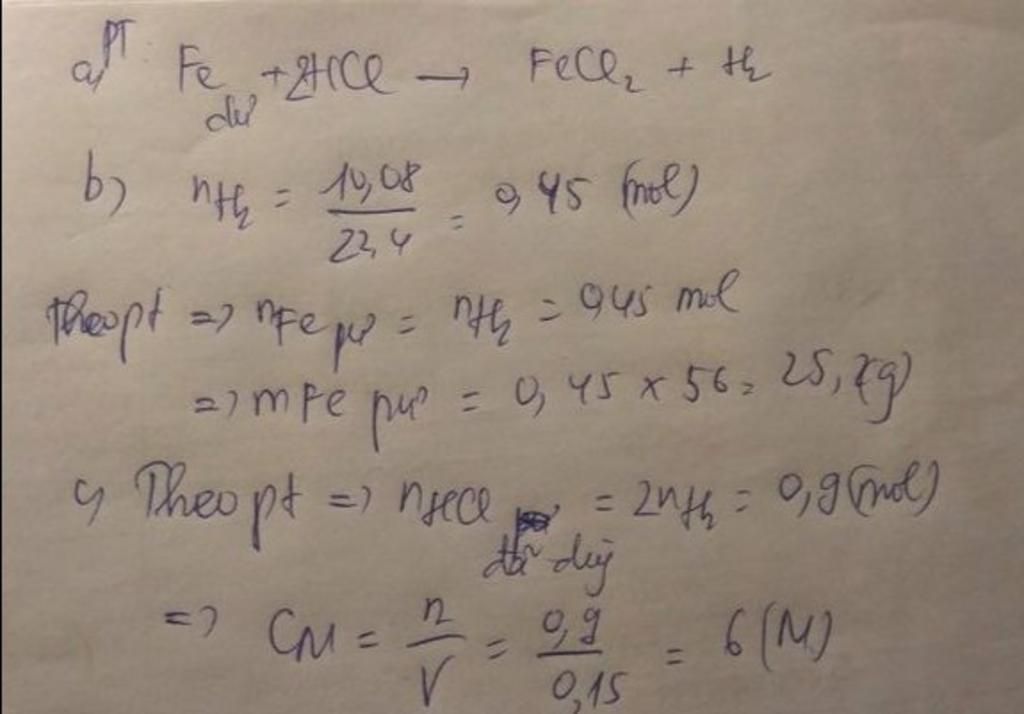 a, PT Fe dư + 2HCl → FeCl₂ + H₂
b) nH₂ = 10,08 / 22,4 = 0,45 (mol)
Theo pt => nFe pứ = nH₂ = 0,45 mol
=> mFe pứ = 0,45 x 56 = 25,2(g)
c, Theo pt => nHCl đã dùng = 2nH₂ = 0,9 (mol)
=> CM = n / V = 0,9 / 0,15 = 6 (M)